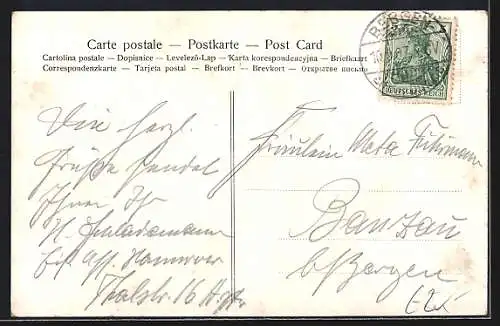 Carte postale — Postkarte — Post Card
Cartolina postale — Dopisnice — Levelező-Lap — Karta korespondencyjna — Briefkaart
Correspondenzkarte — Tarjeta postal — Brefkort — Brevkort — Открытое письмо
BERGEN
DEUTSCHES REICH
Viele herzl.
Grüße sendet
Ihnen Ihr
H.
Hannover
Thalstr. 16
Fräulein Meta Fuhrmann
b/Bergen